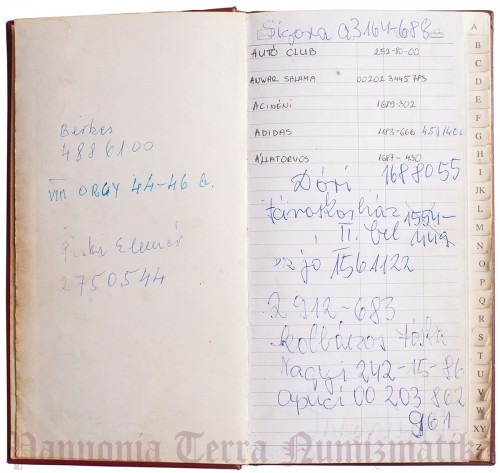 Bérkes
4886100
VIII ORGY 44-46 b.
Piska Elemér
2750544
03164-688
AUTÓ CLUB 252-80-00
ANWAR SALAMA 00202 3445783
ACINÉNI 1689-302
ADIDAS 1183-666
ÁLLATORVOS 1687-430
Dóri 1688055
II. bel
ez jó 1561122
2 912-683
kolbászos
Nagyi 242-15-86
apuci 00 203 802
961
A
B
C
D
E
F
G
H
I
J
K
L
M
N
O
P
Q
R
S
T
U
V
W
XY
Z
Pannonia Terra Numizmatika